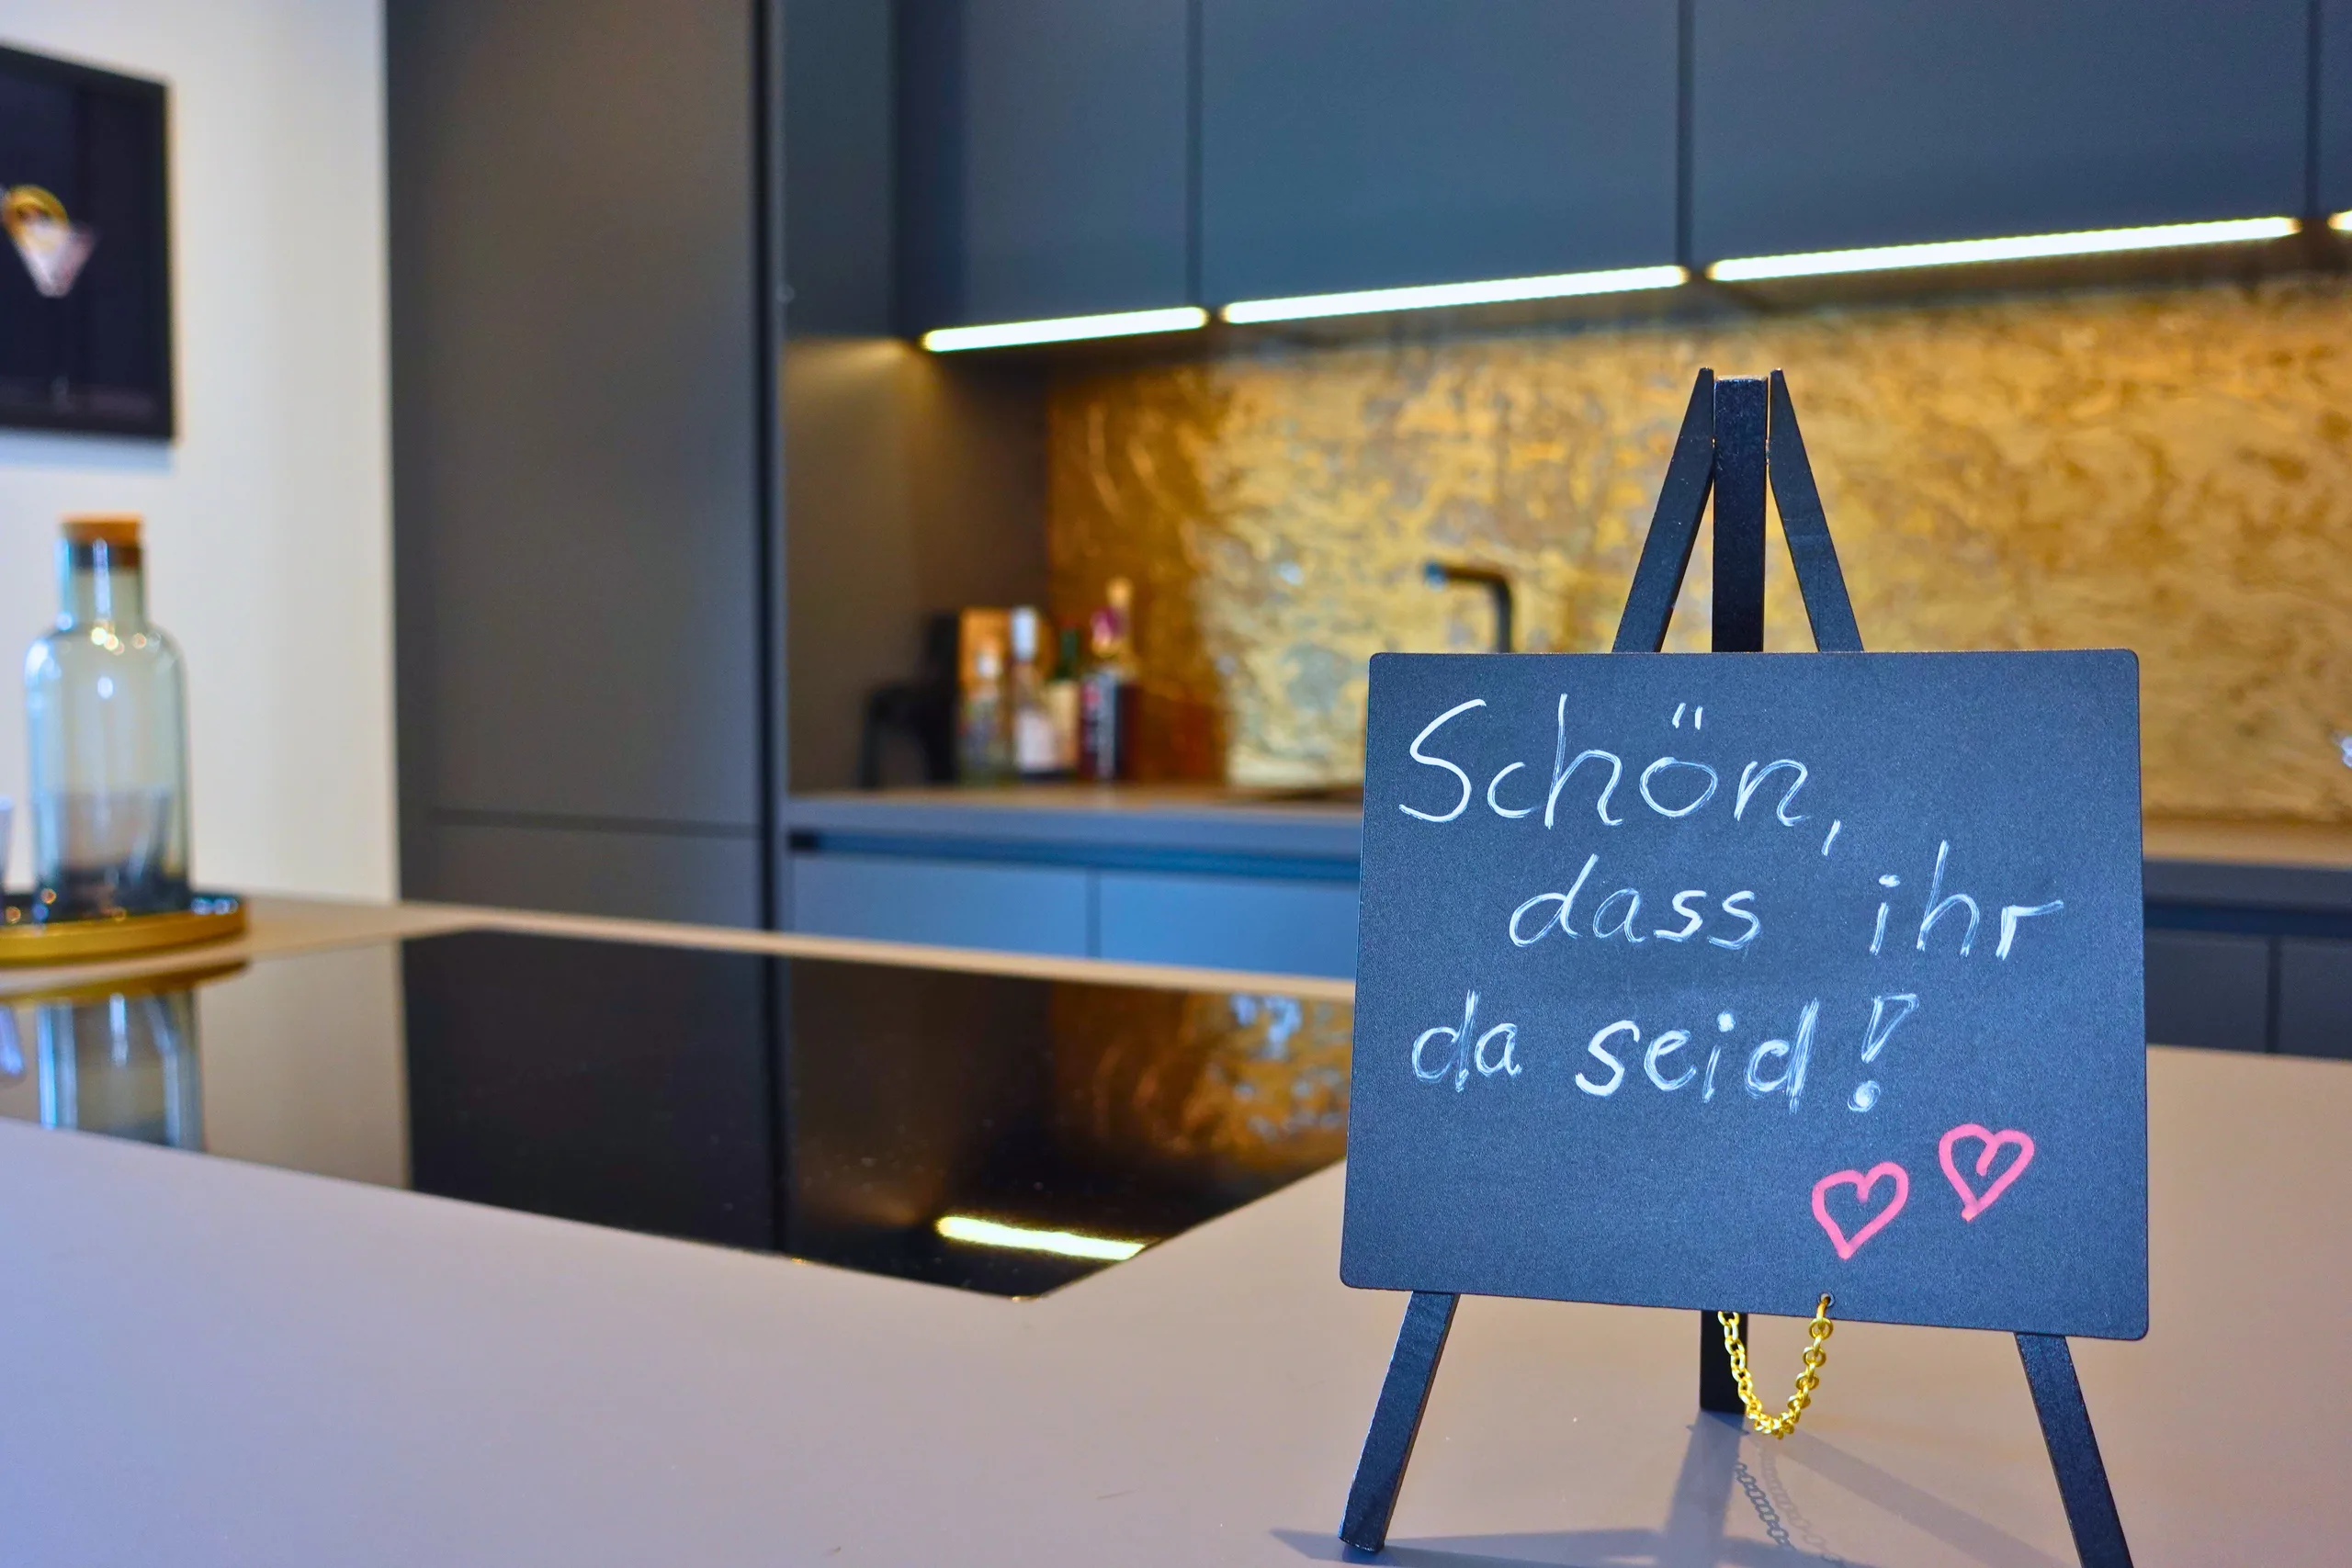 Schön,
dass ihr
da seid!